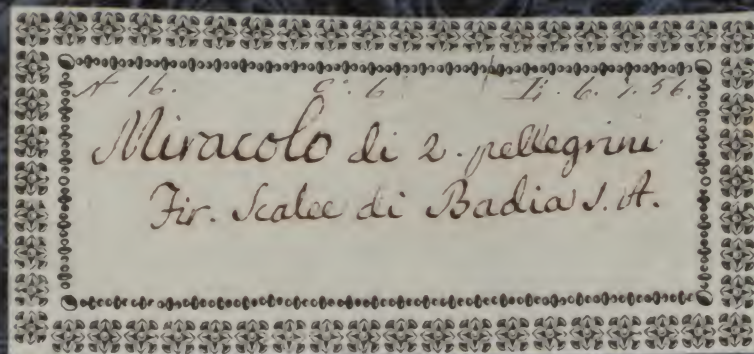 N 16. C. 6 E. 6. 7. 56.
Miracolo di 2. pellegrini
Fir. Scalee di Badia S. A.